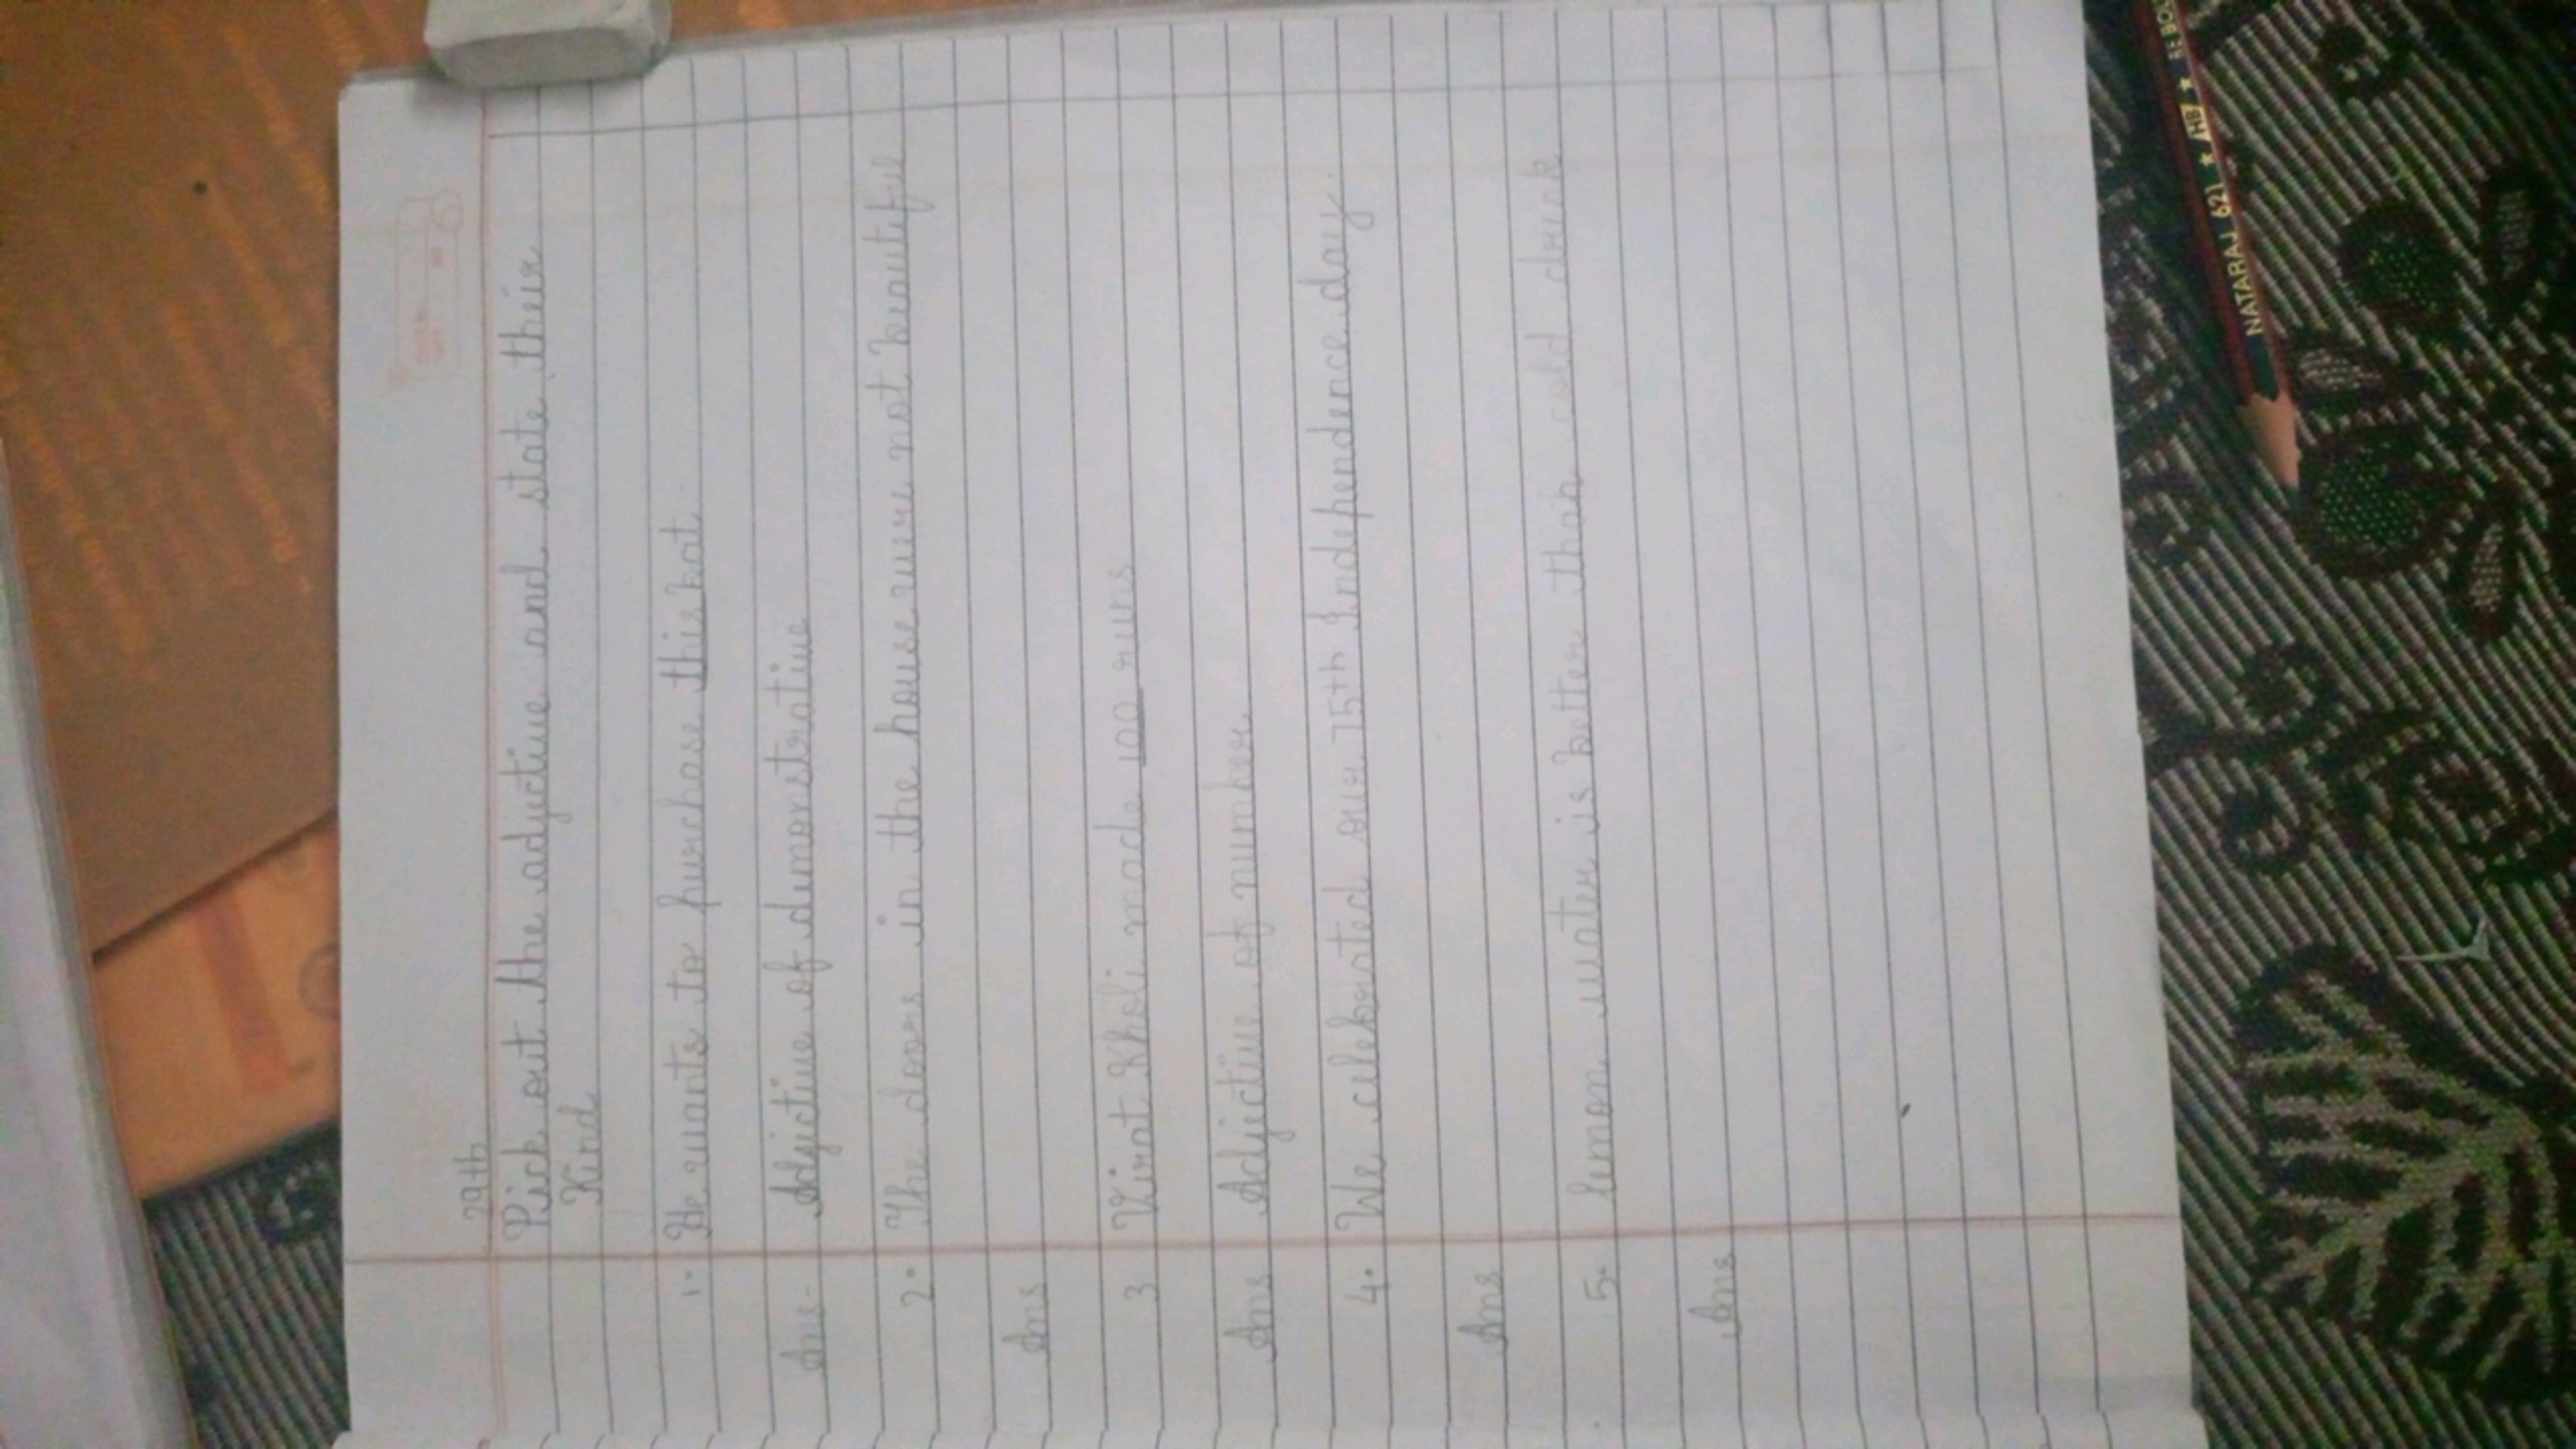 29th
Pick out the adjective and state their
Kind
1. He wants to purchase this bat.
Ans- Adjective of demonstrative
2. The doors in the house were not beautiful
Ans
3 Virat Kholi made 100 runs
Ans Adjective of number
4. We celebrated our 75th Independence day.
Ans
5. Lemon water is better than cold drink
Ans
NATARAJ 621 ★ HB ★